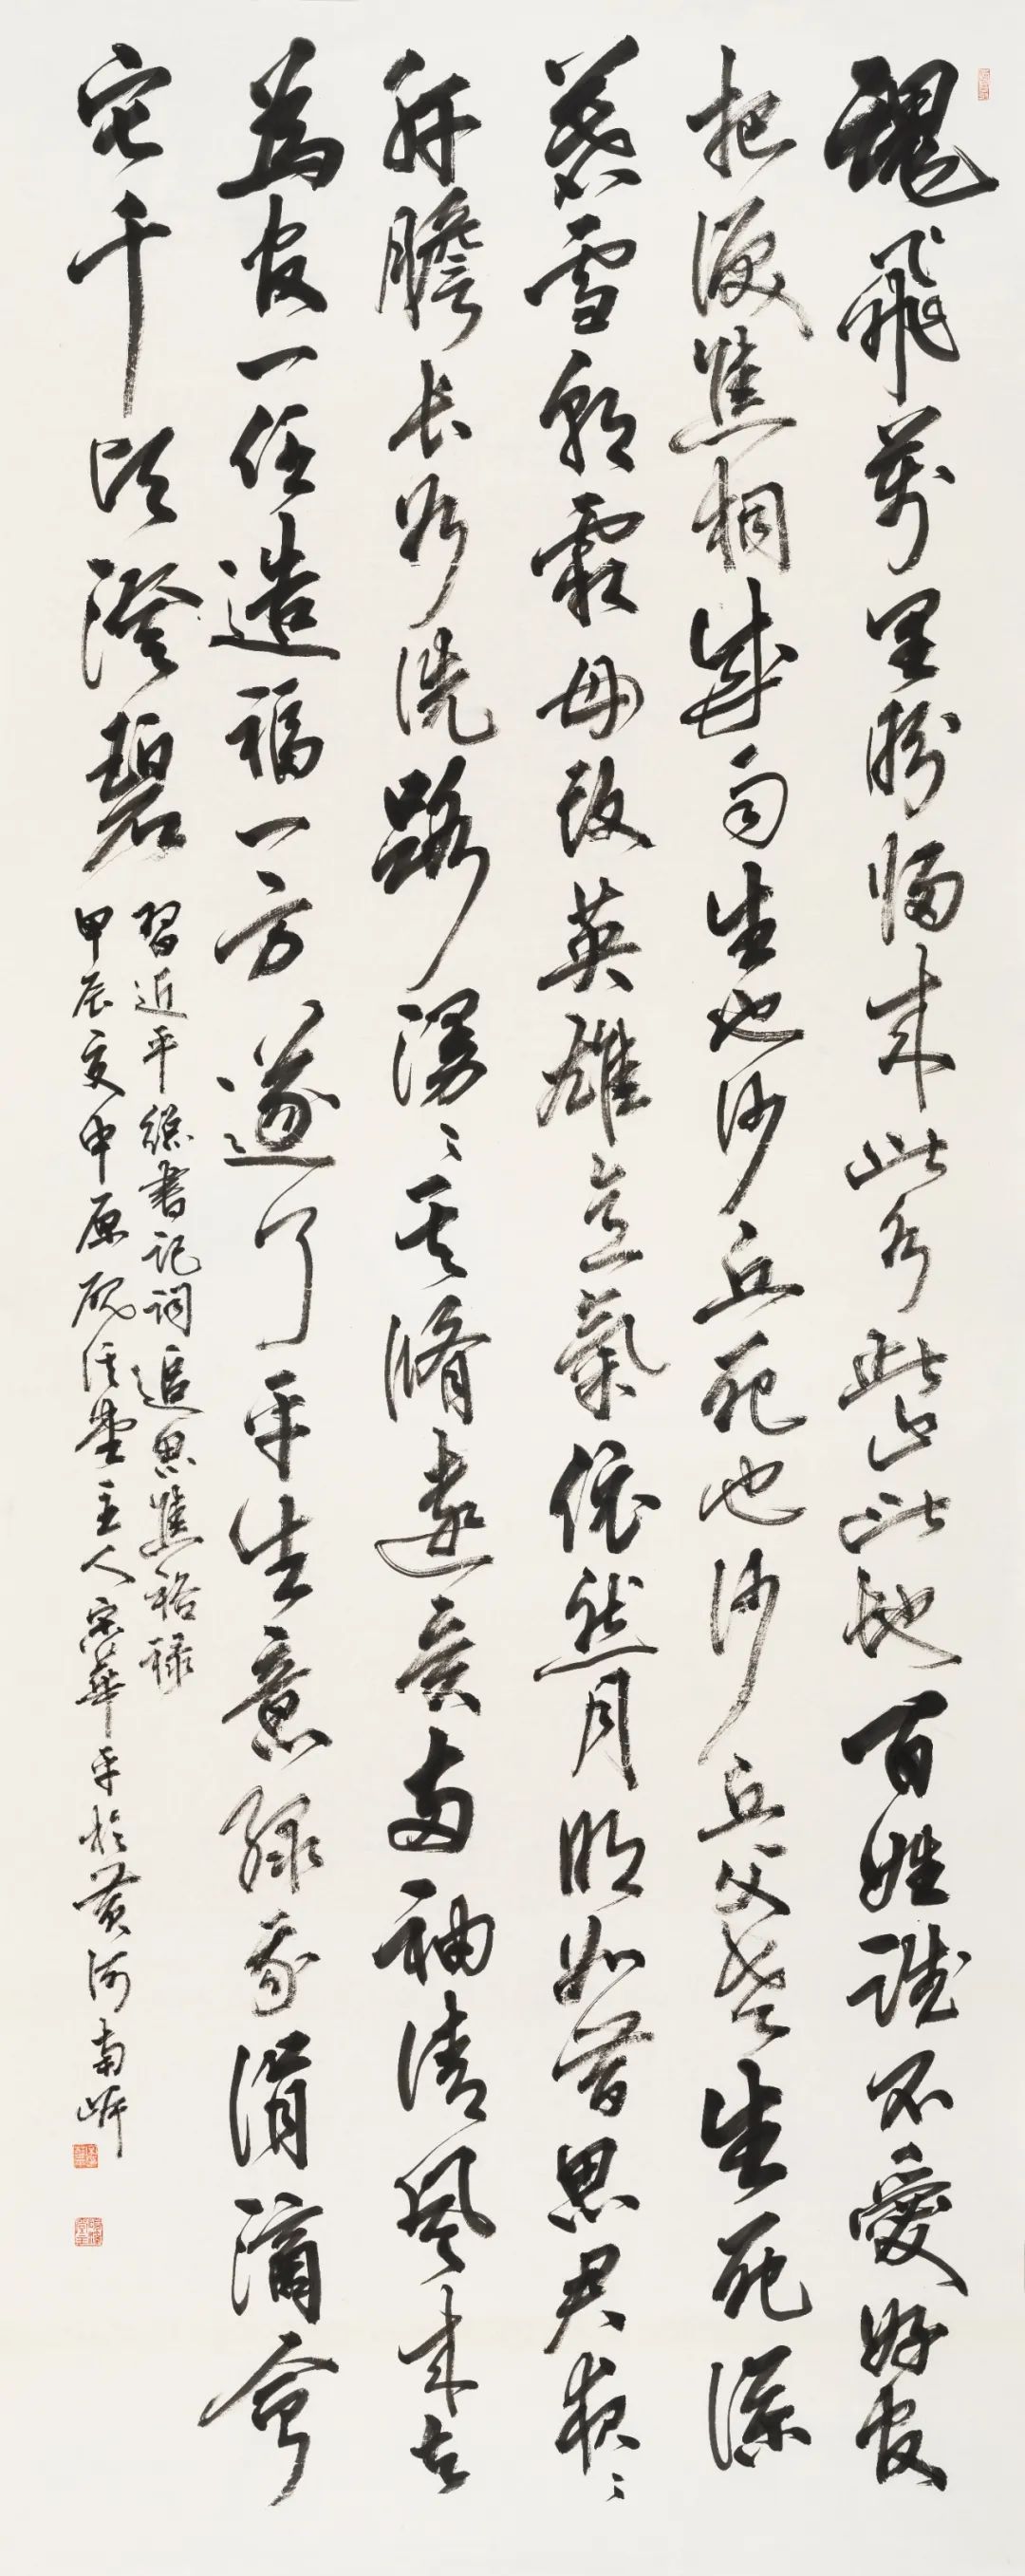 魂飛萬里盼歸來此水此山此地百姓誰不愛好官
把淚焦桐成雨生也沙丘死也沙丘父老生死係
暮雪朝霜毋改英雄意氣依然月明如昔思君夜〻
肝膽長如洗路漫〻其脩遠矣兩袖清風來去
為官一任造福一方遂了平生意綠我涓滴會
它千頃澄碧
習近平總書記詞追思焦裕祿
甲辰夏中原硯法堂主人宗華平於黃河南岸